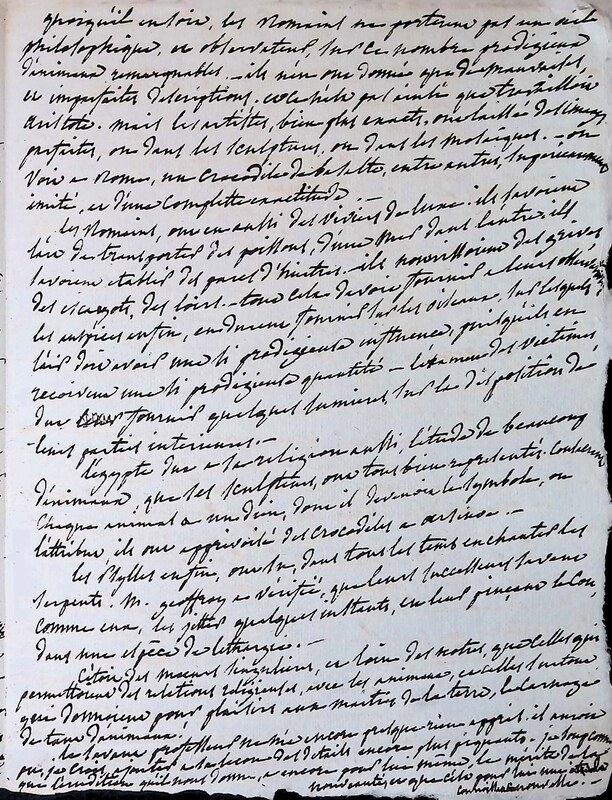 quoiqu'il en soit, les Romains ne porterent pas un œil
philosophique, et observateur, sur ce nombre prodigieux
d'animaux remarquables. - ils n'en ont donné que de mauvaises,
et imparfaites descriptions. ce n'était pas ainsi que travailloit
aristote. mais les artistes, bien plus exacts, ont laissé des images
parfaites, ou dans les sculptures, ou dans les mosaïques. - on
voit a Rome, un crocodile de basalte, entre autres, supérieurement
imité, et d'une complette exactitude. -
les Romains, ont eu aussi des viviers de luxe. ils savoient
l'art de transporter des poissons, d'une mer dans l'autre. ils
savoient etablir des parcs d'huitres. - ils nourrissoient des grives
des escargots, des loirs. - tout cela devoit fournir a leurs
les auspices enfin, en durent fournir sur les oiseaux, sur lesquels
l'air doit avoir une si prodigieuse influence, puisqu'ils en
reçoivent une si prodigieuse quantité - l'examen des victimes
dut fournir quelques lumieres, sur la disposition de
leurs parties interieures. -
l'égypte dut a sa religion aussi, l'étude de beaucoup
d'animaux, que ses sculpteurs, ont tous bien representés.
chaque animal a un dieu, dont il devenoit le symbole, ou
l'attribut, ils ont apprivoisé des crocodiles a arsinoe. -
les Psylles enfin, ont su, dans tous les tems enchanter les
serpents. M. geoffroy a vérifié, que leurs successeurs savent
comme eux, les jetter quelques instants, en leur pinçant le cou,
dans une espèce de lethargie. -
c'étoit des mœurs singulieres, et loin des notres, que celles qui
permettoient des relations religieuses, avec les animaux, et celles surtout
qui donnoient pour plaisirs aux maitres de la terre, le carnage
de tant d'animaux.
le savant professeur ne m'a encore presque rien appris. il auroit
pu, je crois, joindre a sa leçon des détails encore plus piquants. -
que l'érudition qu'il nous donne, a encore pour lui même, le mérite de la
nouveauté, et que c'est pour lui une
nouvelle.